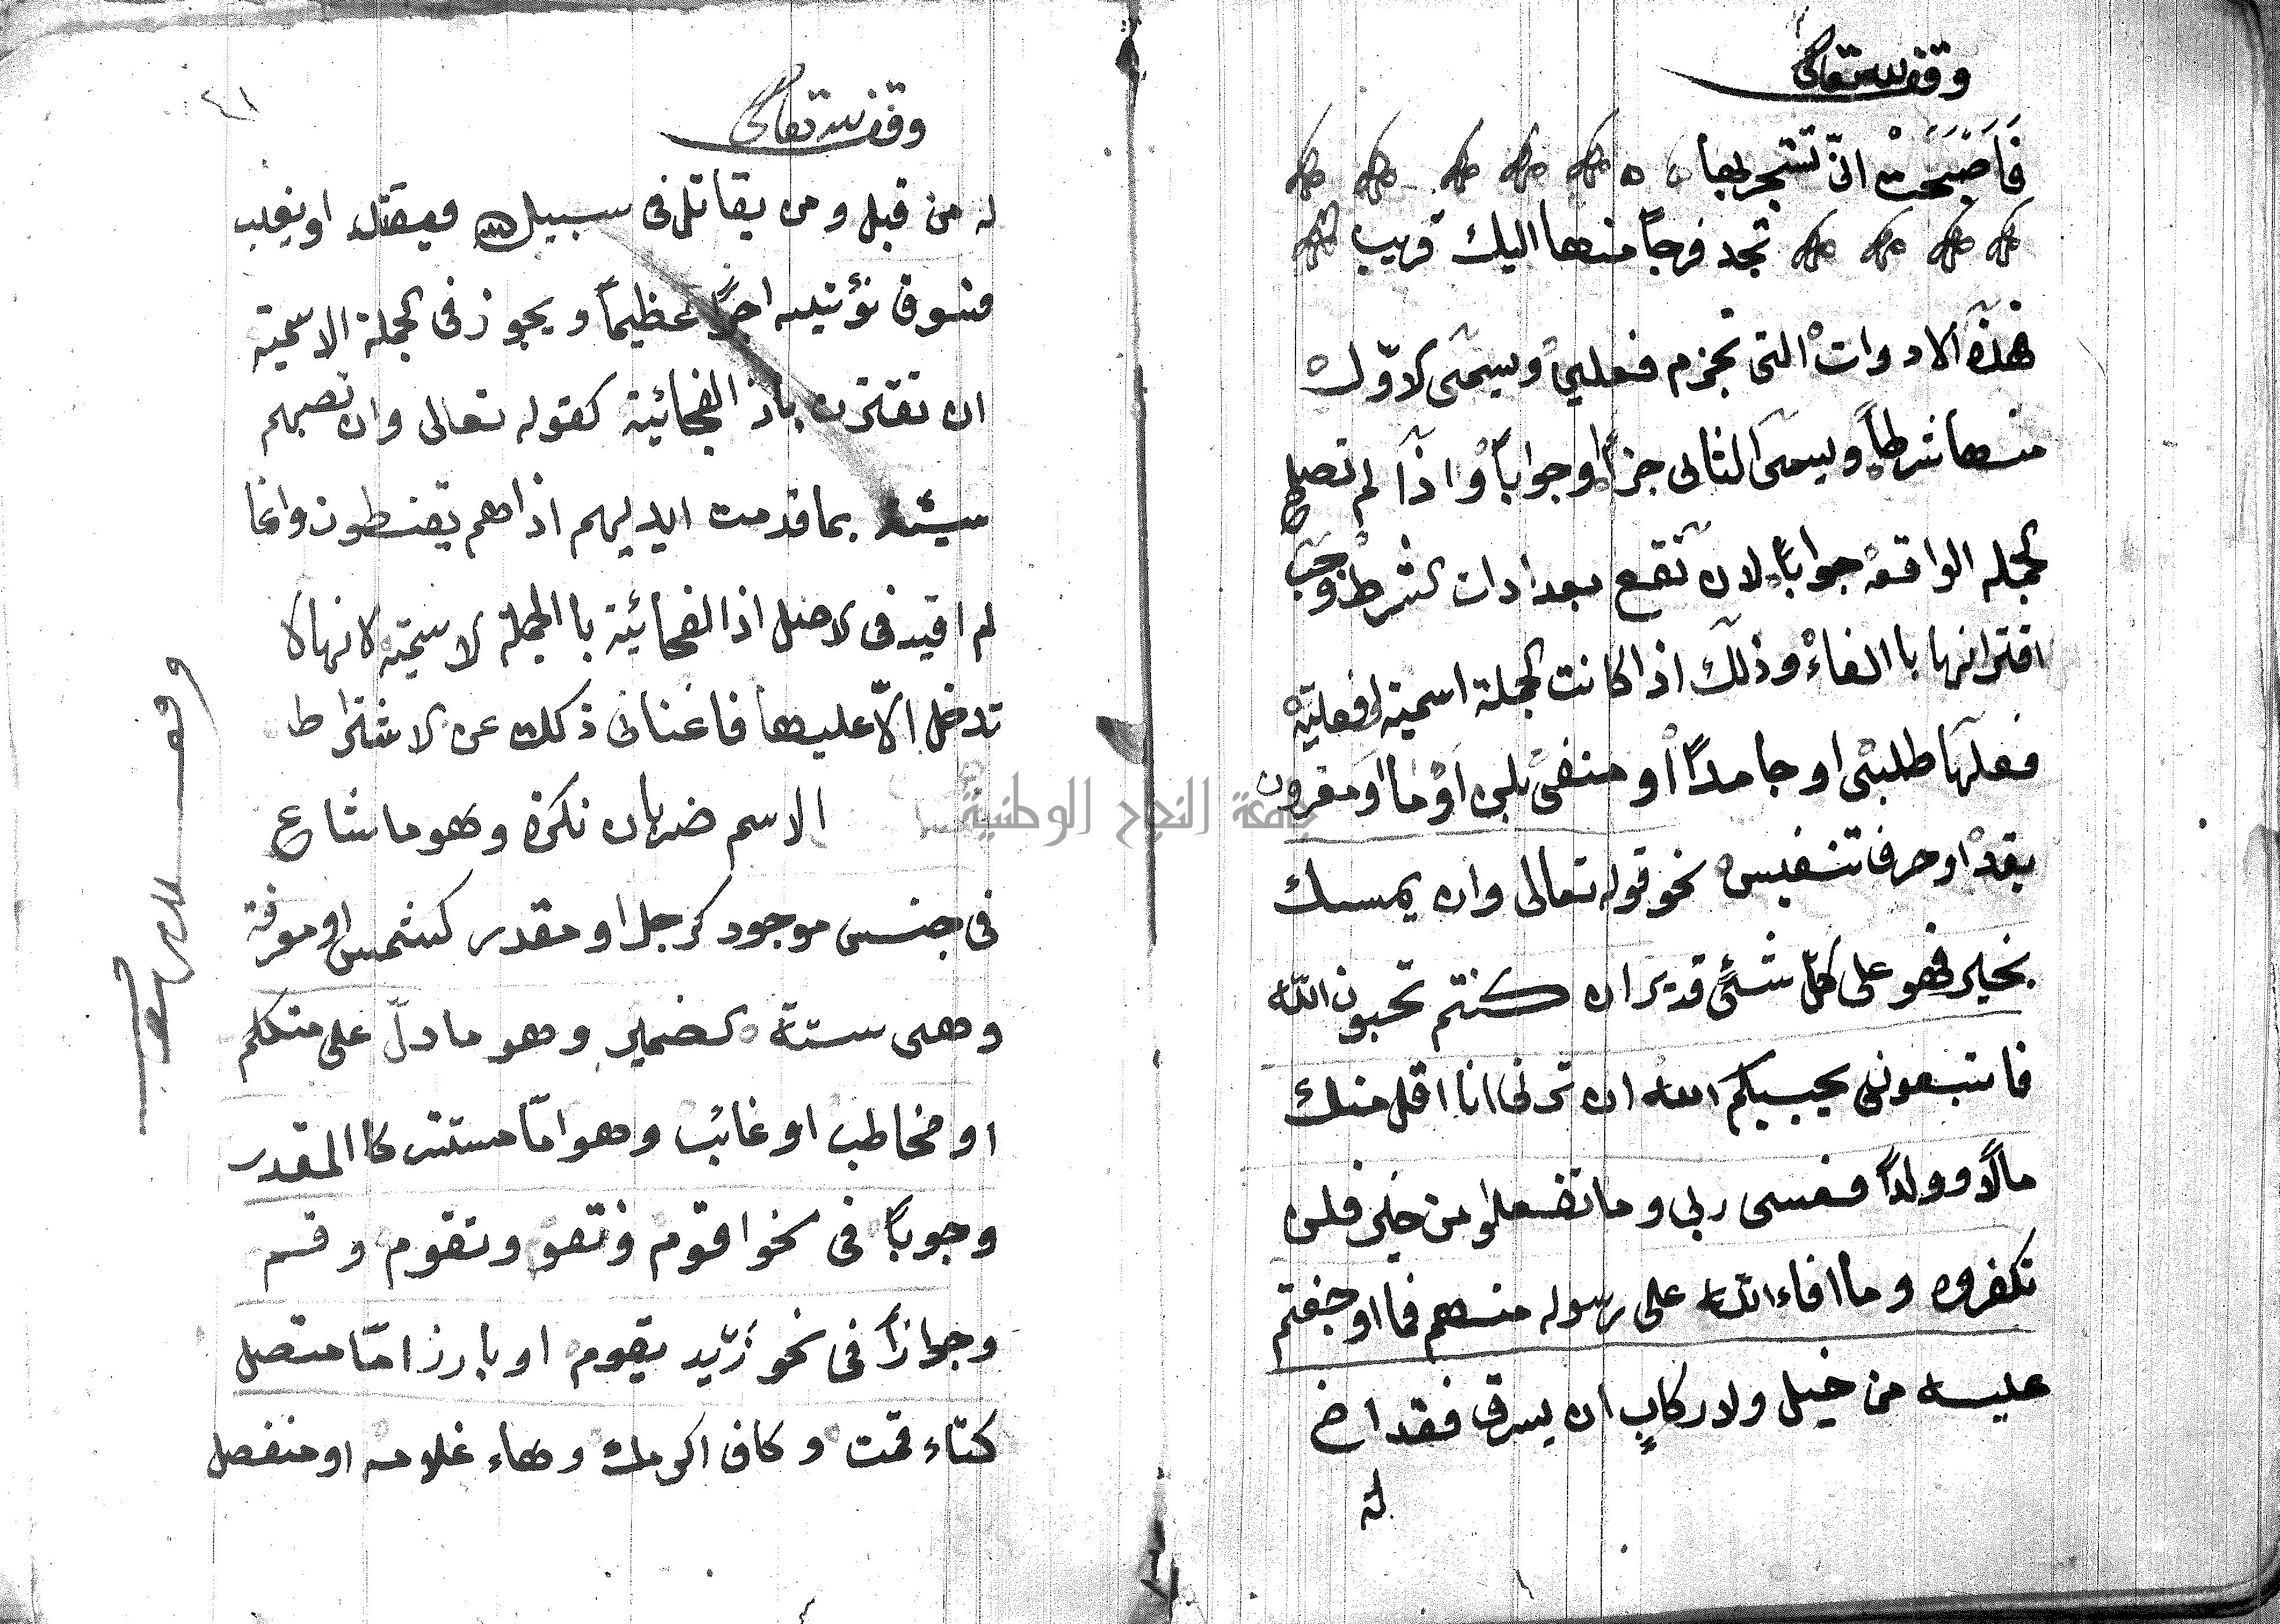 وقف لله تعالى
فَاَصْبَحْتَ انّ تستجر بها
تجد فرجاً منها اليك قريب
فهذه الادوات التى تجزم فعلين ويسمى الاوّل
منها شرطاً ويسمى الثانى جزاً وجواباً واذا لم تصلح
الجمله الواقعه جواباً لان تقع بعد ادات الشرط وجب
اقترانها باالفاء وذلك اذا كانت الجملة اسمية او فعليّة
فعلها طلبى او جامداً او منفى بلن او ما او مقرون
بقد او حرف تنفيس نحو قوله تعالى وان يمسسك
بخير فهو على كلّ شئ قدير ان كنتم تحبون الله
فاتبعونى يحببكم الله ان ترنى انا اقل منك
مالاً وولداً فعسى ربى وما تفعلوا من خير فلن
تكفروه وما افاء الله على رسوله منهم فما اوجفتم
عليه من خيل ولا ركابٍ ان يسرق فقد اخ
له
وقف لله تعالى
٤١
له من قبل ومن يقاتل فى سبيل الله فيقتل او يغلب
فسوف نؤتيه اجراً عظيماً ويجوز فى الجملة الاسمية
ان تقترن باذا الفجائية كقوله تعالى وان تصبهم
سيئة بما قدمت ايديهم اذا هم يقنطون وانما
لم اقيد فى الاصل اذا الفجائية باالجملة الاسمية لانها لا
تدخل الّا عليها فاغنانى ذلك عن الاشتراط
الاسم ضربان نكرة وهو ما شاع
فى جنس موجود كرجل او مقدر كشمس او معرفة
وهى ستة الضمير وهو ما دلّ على متكلم
او مخاطب او غائب وهو امّا مستتر كاالمقدر
وجوباً فى نحو اقوم ونقو وتقوم وقم
وجوازاً فى نحو زيد يقوم او بارز امّا متصل
كتاء قمت وكاف اكرمك وهاء غلامه او منفصل
وقف لله تعالى
جامعة النجاح الوطنية